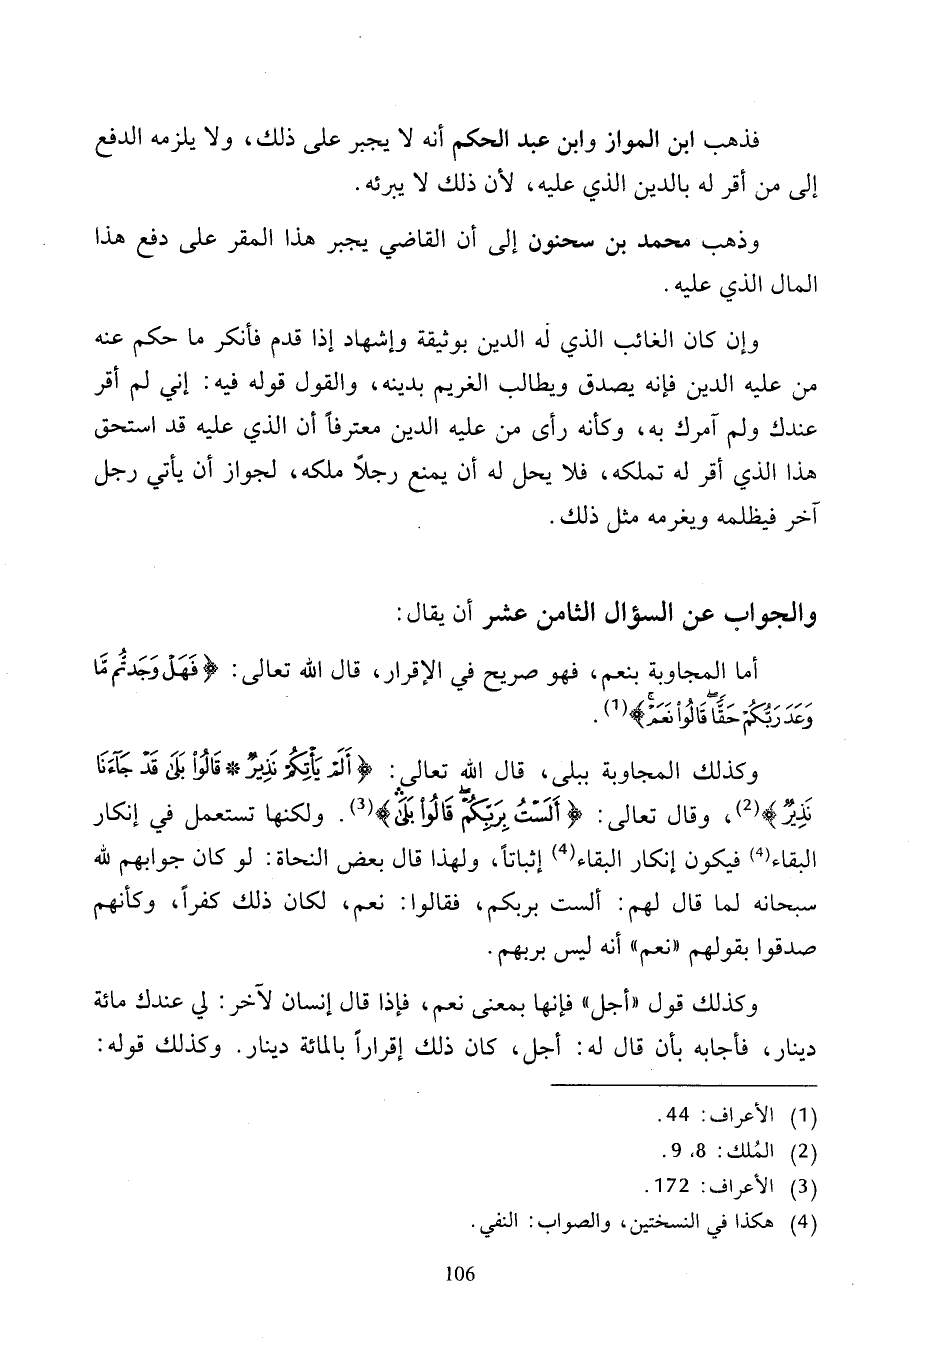 فذهب ابن المواز وابن عبد الحكم أنه لا يجبر على ذلك، ولا يلزمه الدفع
إلى من أقر له بالدين الذي عليه، لأن ذلك لا يبرئه.
وذهب محمد بن سحنون إلى أن القاضي يجبر هذا المقر على دفع هذا
المال الذي عليه.
وإن كان الغائب الذي له الدين بوثيقة وإشهاد إذا قدم فأنكر ما حكم عنه
من عليه الدين فإنه يصدق ويطالب الغريم بدينه، والقول قوله فيه: إني لم أقر
عندك ولم آمرك به، وكأنه رأى من عليه الدين معترفاً أن الذي عليه قد استحق
هذا الذي أقر له تملكه، فلا يحل له أن يمنع رجلاً ملكه، لجواز أن يأتي رجل
آخر فيظلمه ويغرمه مثل ذلك.
والجواب عن السؤال الثامن عشر أن يقال:
أما المجاوبة بنعم، فهو صريح في الإقرار، قال الله تعالى: ﴿فَهَلْ وَجَدتُّم مَّا
وَعَدَ رَبُّكُمْ حَقًّا قَالُوا نَعَمْ﴾(1).
وكذلك المجاوبة ببلى، قال الله تعالى: ﴿أَلَمْ يَأْتِكُمْ نَذِيرٌ * قَالُوا بَلَىٰ قَدْ جَآءَنَا
نَذِيرٌ﴾(2)، وقال تعالى: ﴿أَلَسْتُ بِرَبِّكُمْ قَالُوا بَلَىٰ﴾(3). ولكنها تستعمل في إنكار
البقاء(4) فيكون إنكار البقاء(4) إثباتاً، ولهذا قال بعض النحاة: لو كان جوابهم لله
سبحانه لما قال لهم: ألست بربكم، فقالوا: نعم، لكان ذلك كفراً، وكأنهم
صدقوا بقولهم «نعم» أنه ليس بربهم.
وكذلك قول «أجل» فإنها بمعنى نعم، فإذا قال إنسان لآخر: لي عندك مائة
دينار، فأجابه بأن قال له: أجل، كان ذلك إقراراً بالمائة دينار. وكذلك قوله:
(1) الأعراف: 44.
(2) المُلك: 8، 9.
(3) الأعراف: 172.
(4) هكذا في النسختين، والصواب: النفي.
106